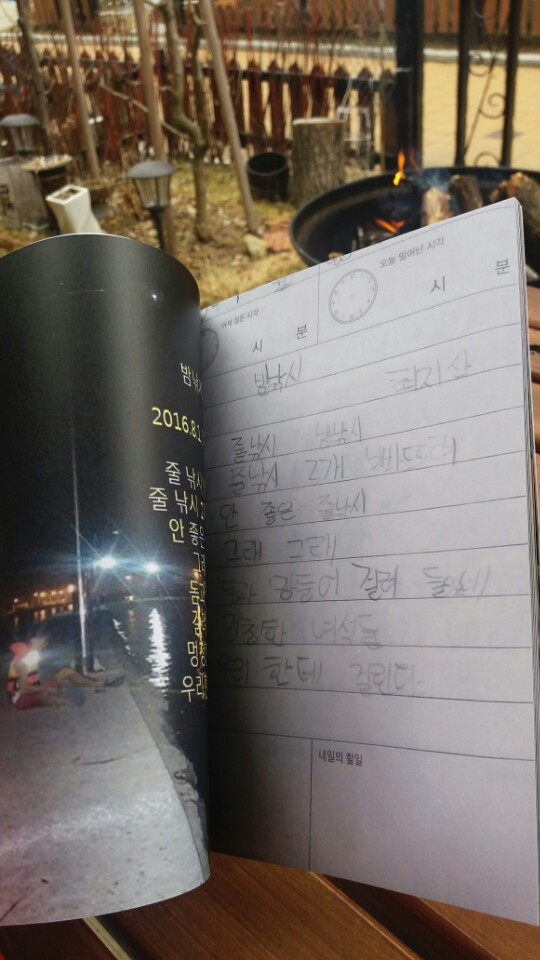 밤낚시
2016.8.1
줄 낚시
줄 낚시 2
안 좋은
그
돔
걸
멍청
우리
어제 잠든 시각
시 분
오늘 일어난 시각
시 분
밤낚시 최지산
줄낚시 밤낚시
줄낚시 2개
안 좋은 줄낚시
그래 그래
돔과 망둥어 걸려 들었네
멍청한 녀석들
우리 한테 걸린다
내일의 할일